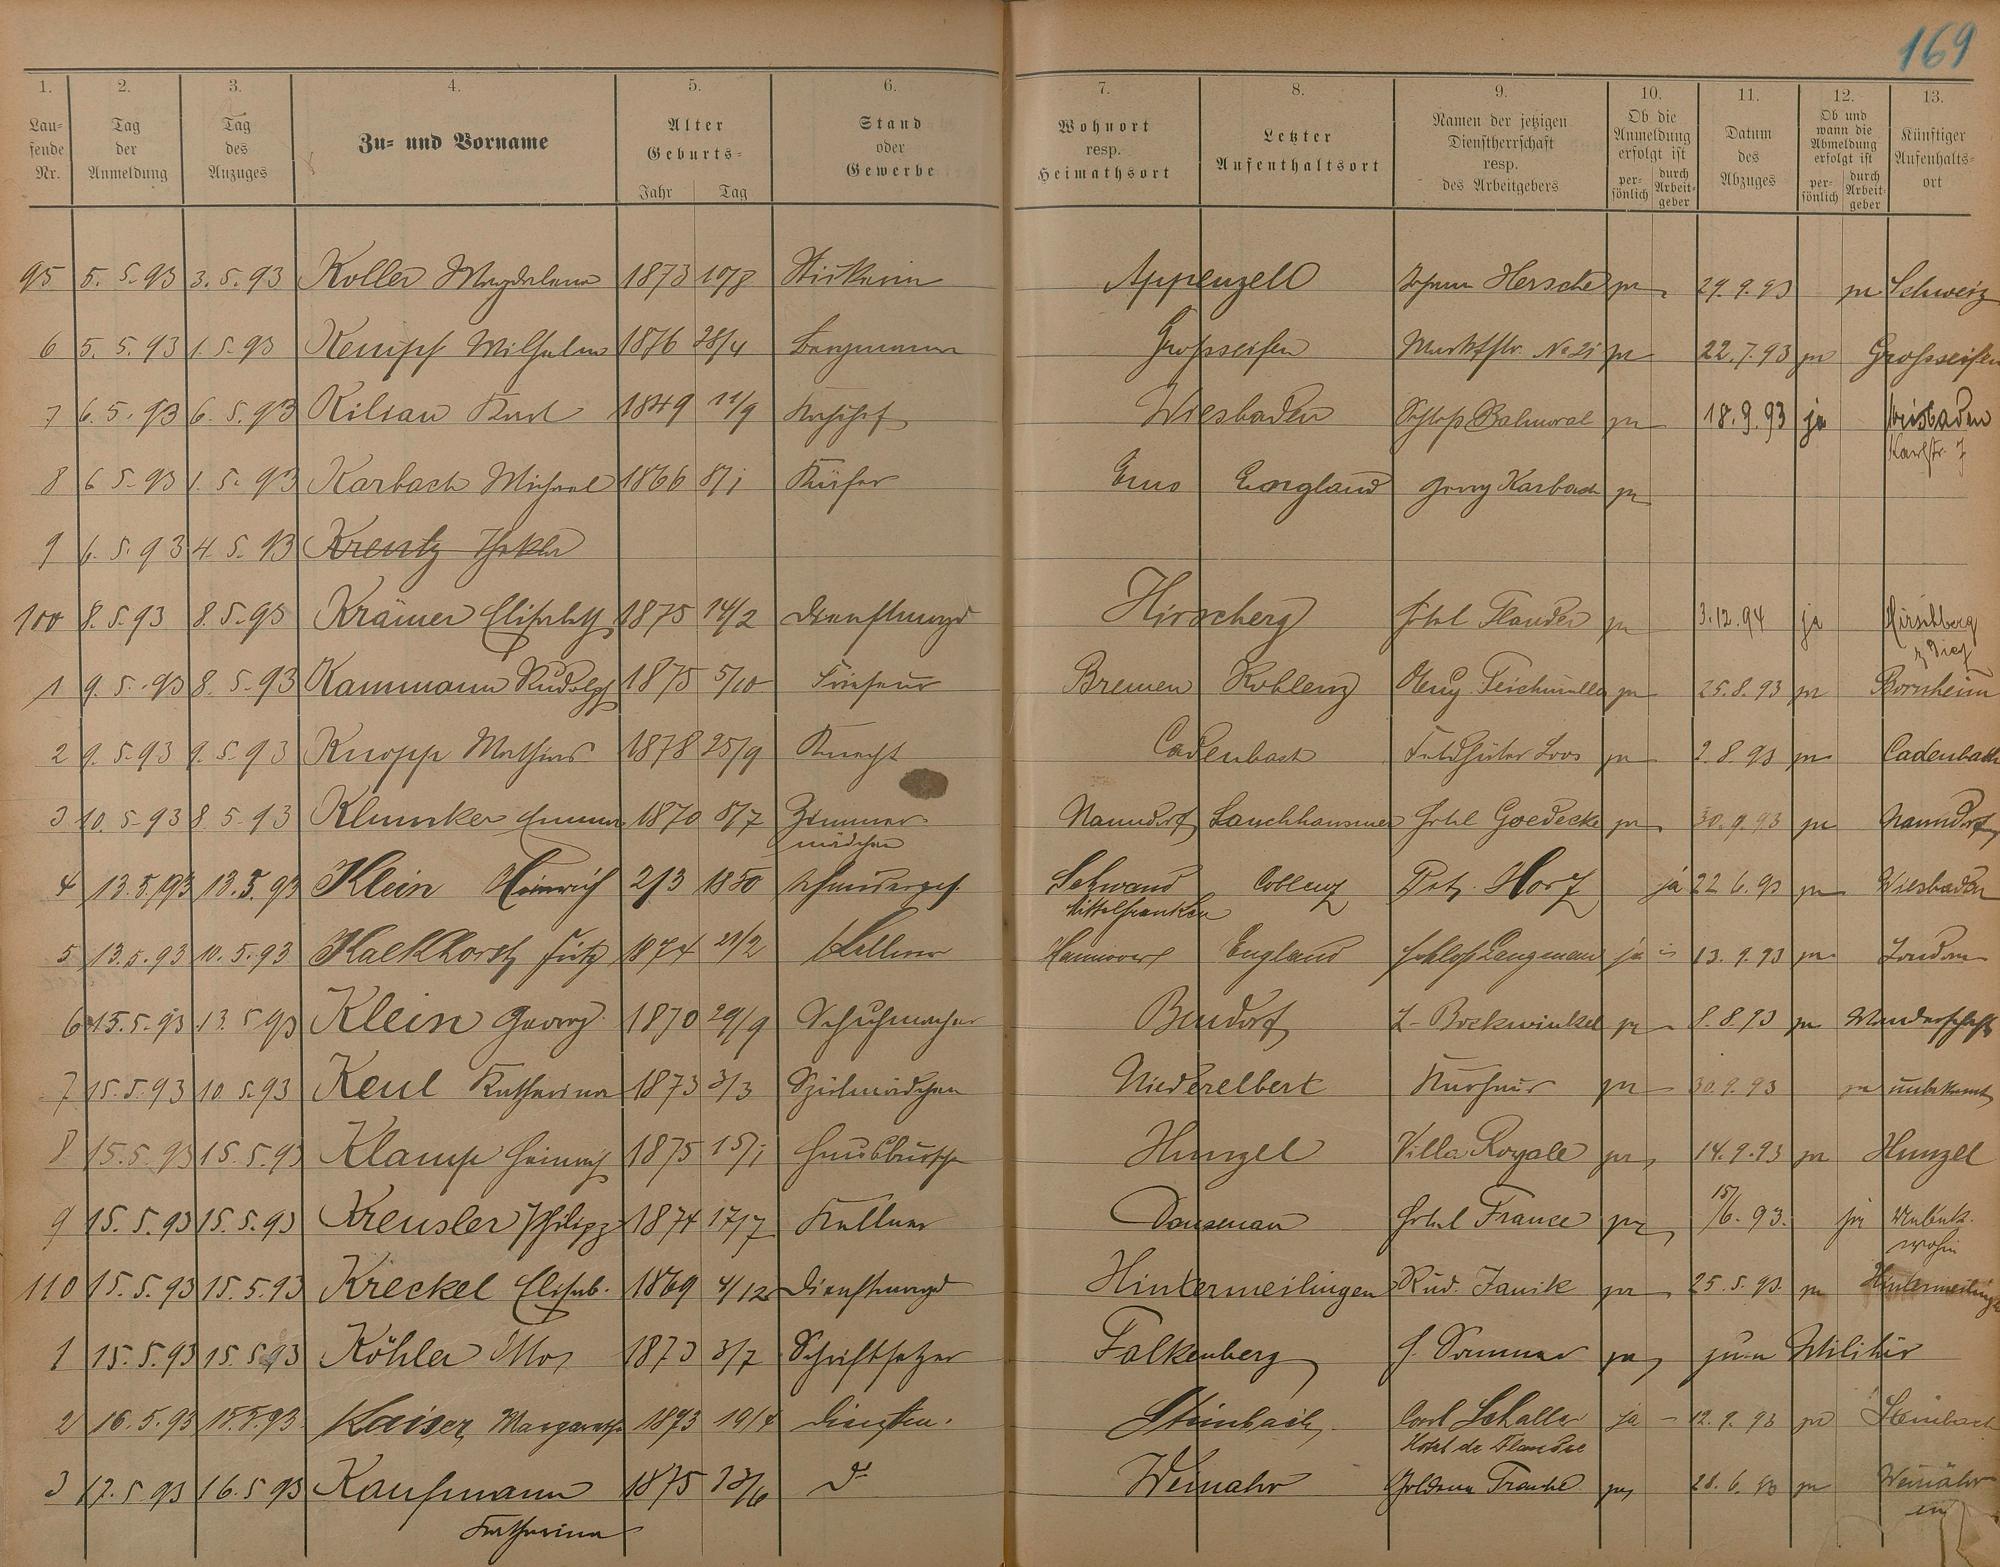 169
1. 2. 3. 4. 5. 6. 7. 8. 9. 10. 11. 12. 13.
Lau-
fende
Nr.
Tag
der
Anmeldung
Tag
des
Anzuges
Zu- und Vorname
Alter
Geburts-
Jahr Tag
Stand
oder
Gewerbe
Wohnort
resp.
Heimathsort
Letzter
Aufenthaltsort
Namen der jetzigen
Dienstherrschaft
resp.
des Arbeitgebers
Ob die
Anmeldung
erfolgt ist
per-
sönlich
durch
Arbeit-
geber
Datum
des
Abzuges
Ob und
wann die
Abmeldung
erfolgt ist
per-
sönlich
durch
Arbeit-
geber
Künftiger
Aufenthalts-
ort
95 5.5.93 3.5.93 Koller Magdalena 1873 10/8 Stickerin Appenzell Johann Hersche ja 29.9.93 ja Schweiz
6 5.5.93 1.5.93 Kempf Wilhelm 1876 28/4 Bergmann Großseifen Marktstr. No 21 ja 22.7.93 ja Grossseifen
7 6.5.93 6.5.93 Kilian Karl 1849 11/9 Wiesbaden Schloß Balmoral ja 18.9.93 ja Wiesbaden
Karlstr. 7
8 6.5.93 1.5.93 Karbach Michael 1866 8/1 Küfer Ems England Georg Karbach ja
9 6.5.93 4.5.93 Kreutz Thekla
100 8.5.93 8.5.93 Krämer Elisabeth 1875 14/2 Dienstmagd Hirscherg Hotel Flandre ja 3.12.94 ja Hirschberg
b/ Diez
1 9.5.93 8.5.93 Kammann Rudolph 1875 5/10 Friseur Bremen Koblenz Teichmüller ja 25.8.93 ja Bornheim
2 9.5.93 9.5.93 Knopp Mathias 1878 25/9 Knecht Cadenbach Feldhüter Loos ja 2.8.93 ja Cadenbach
3 10.5.93 8.5.93 Klunker Emma 1870 8/7 Zimmer-
mädchen
Naundorf Hotel Goedecke ja 30.9.93 ja Naundorf
4 13.5.93 13.5.93 Klein Heinrich 2/3 1850 Schneiderges. Schwand
Mittelfranken
Coblenz Pet. Horz ja 22.6.93 ja Wiesbaden
5 13.5.93 10.5.93 Kalkhorst Fritz 1874 21/2 Kellner Hannover England Schloß Langenau ja 13.9.93 ja London
6 15.5.93 13.5.93 Klein Georg 1870 29/9 Schuhmacher Bendorf L. Bockwinkel ja 8.8.93 ja Wanderschaft
7 15.5.93 10.5.93 Keul Katharina 1873 3/3 Spülmädchen Niederelbert Kurhaus ja 30.9.93 ja unbekannt
8 15.5.93 15.5.93 Klamp Heinrich 1875 15/1 Hausbursche Hunzel Villa Royale ja 14.9.93 ja Hunzel
9 15.5.93 15.5.93 Kreusler Philipp 1874 17/7 Kellner Dausenau Hotel France ja 15/6.93. ja Unbek.
wohin
110 15.5.93 15.5.93 Kreckel Elisab. 1869 4/12 Dienstmagd Hintermeilingen Rud. Janik ja 25.5.93. ja Hintermeilingen
1 15.5.93 15.5.93 Köhler Max 1873 3/7 Schriftsetzer Falkenberg H. Sommer ja zum Militär
2 16.5.93 15.5.93 Kaiser Margarethe 1873 19/4 Dienstm. Steinbach Carl Schaller
Hotel de Flandre
ja 12.9.93 ja Steinbach
3 17.5.93 16.5.93 Kaufmann
Katharina
1875 23/6 do Weinahr Goldene Traube ja 28.6.93 ja Weinähr